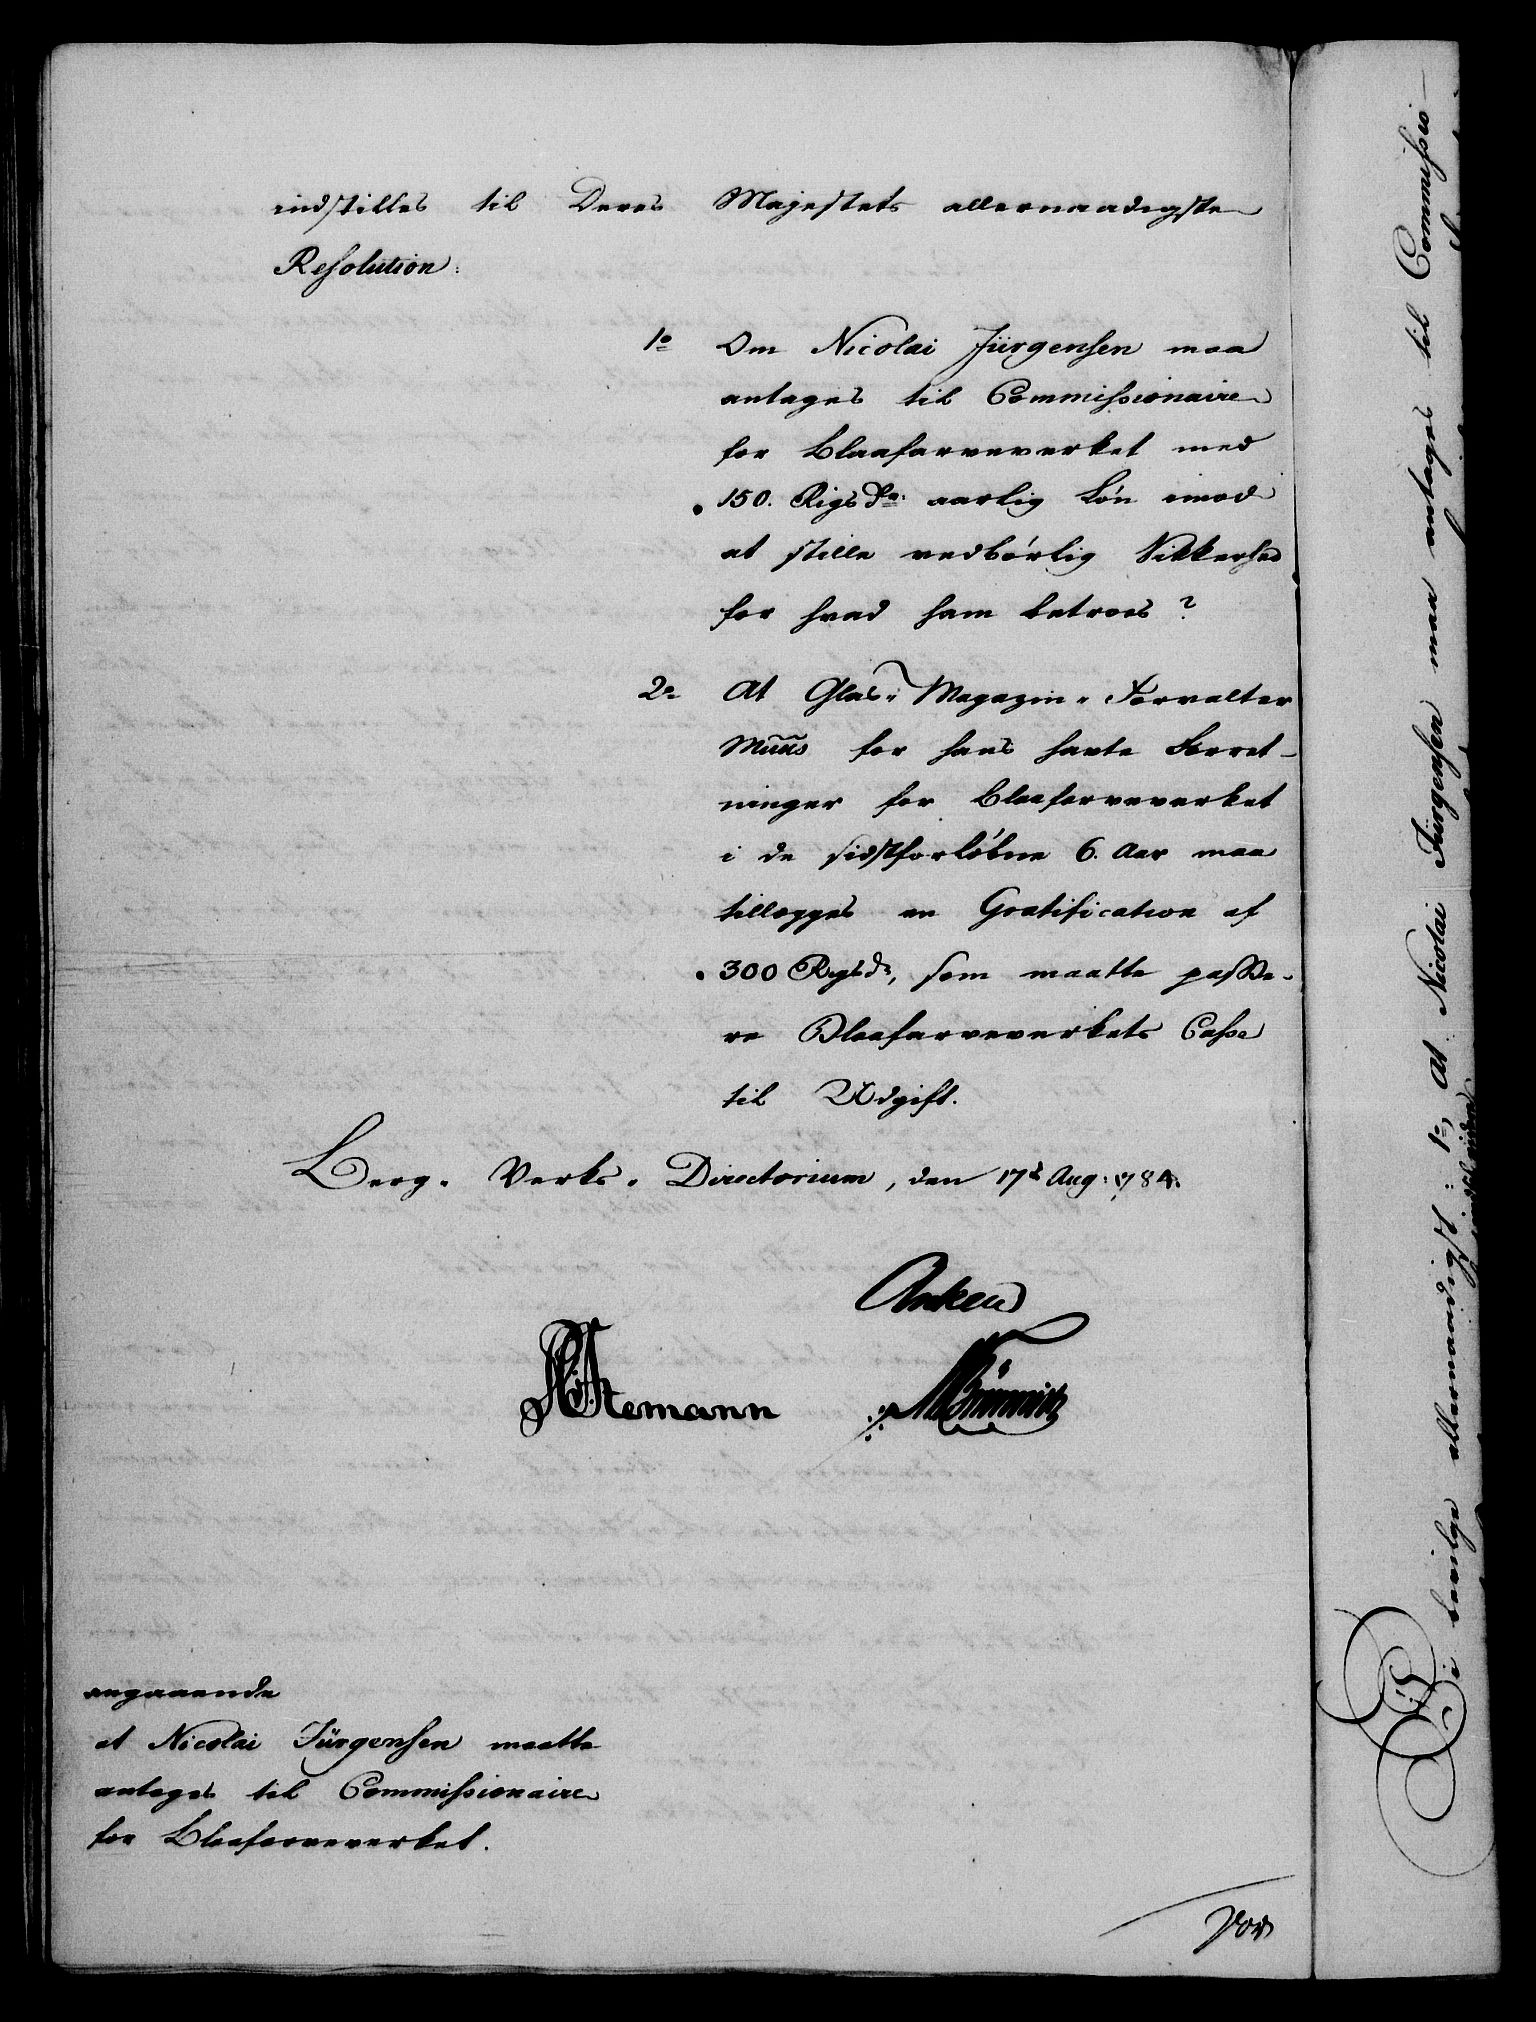 indstilles til Deres Majestets allernaadigste
Resolution:
1º Om Nicolai Jürgensen maa
antages til Commissionaire
for Blaafarveverket med
150. Rigsdr. aarlig Løn imod
at stille vedbørlig Sikkerhed
for hvad ham betroes?
2º At Glas-Magazin-Forvalter
Muus for hans havte Forret-
ninger for Blaafarveverket
i de sidstforløbne 6. Aar maa
tillægges en Gratification af
300 Rigsdr, som maatte passe-
re Blaafarveverkets Casse
til Udgift.
Berg-Verks-Directorium, den 17d Aug: 1784.
Anker
angaaende
at Nicolai Jürgensen maatte
antages til Commissionaire
for Blaafarveverket.
Vor
Vi bevilge allernaadigst: 1º, At Nicolai Jürgensen maa antages til Commissio-